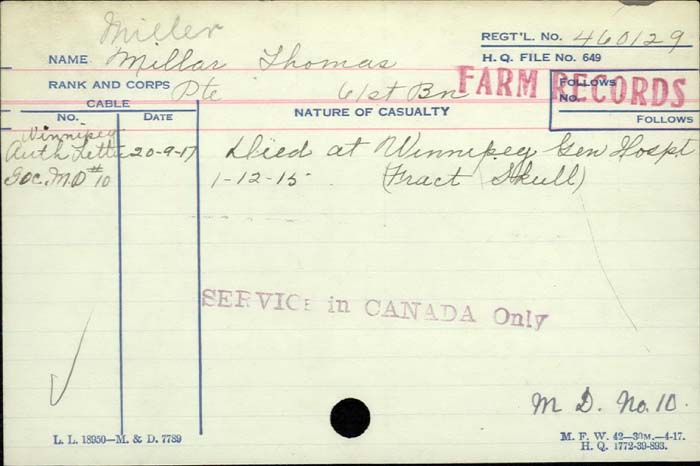 Miller
REGT'L. NO. 460129
NAME Millar Thomas
H. Q. FILE NO. 649
RANK AND CORPS Pte 61st Bn
FARM RECORDS
FOLLOWS
NO.
FOLLOWS
CABLE
NO. DATE
NATURE OF CASUALTY
Winnipeg
Auth Letter 20-9-17 Died at Winnipeg Gen Hospt
GOC. M.D #10 1-12-15 (Fract Skull)
SERVICE in CANADA Only
M D. No. 10.
L. L. 18950—M. & D. 7789
M. F. W. 42—30M.—4-17.
H. Q. 1772-39-893.